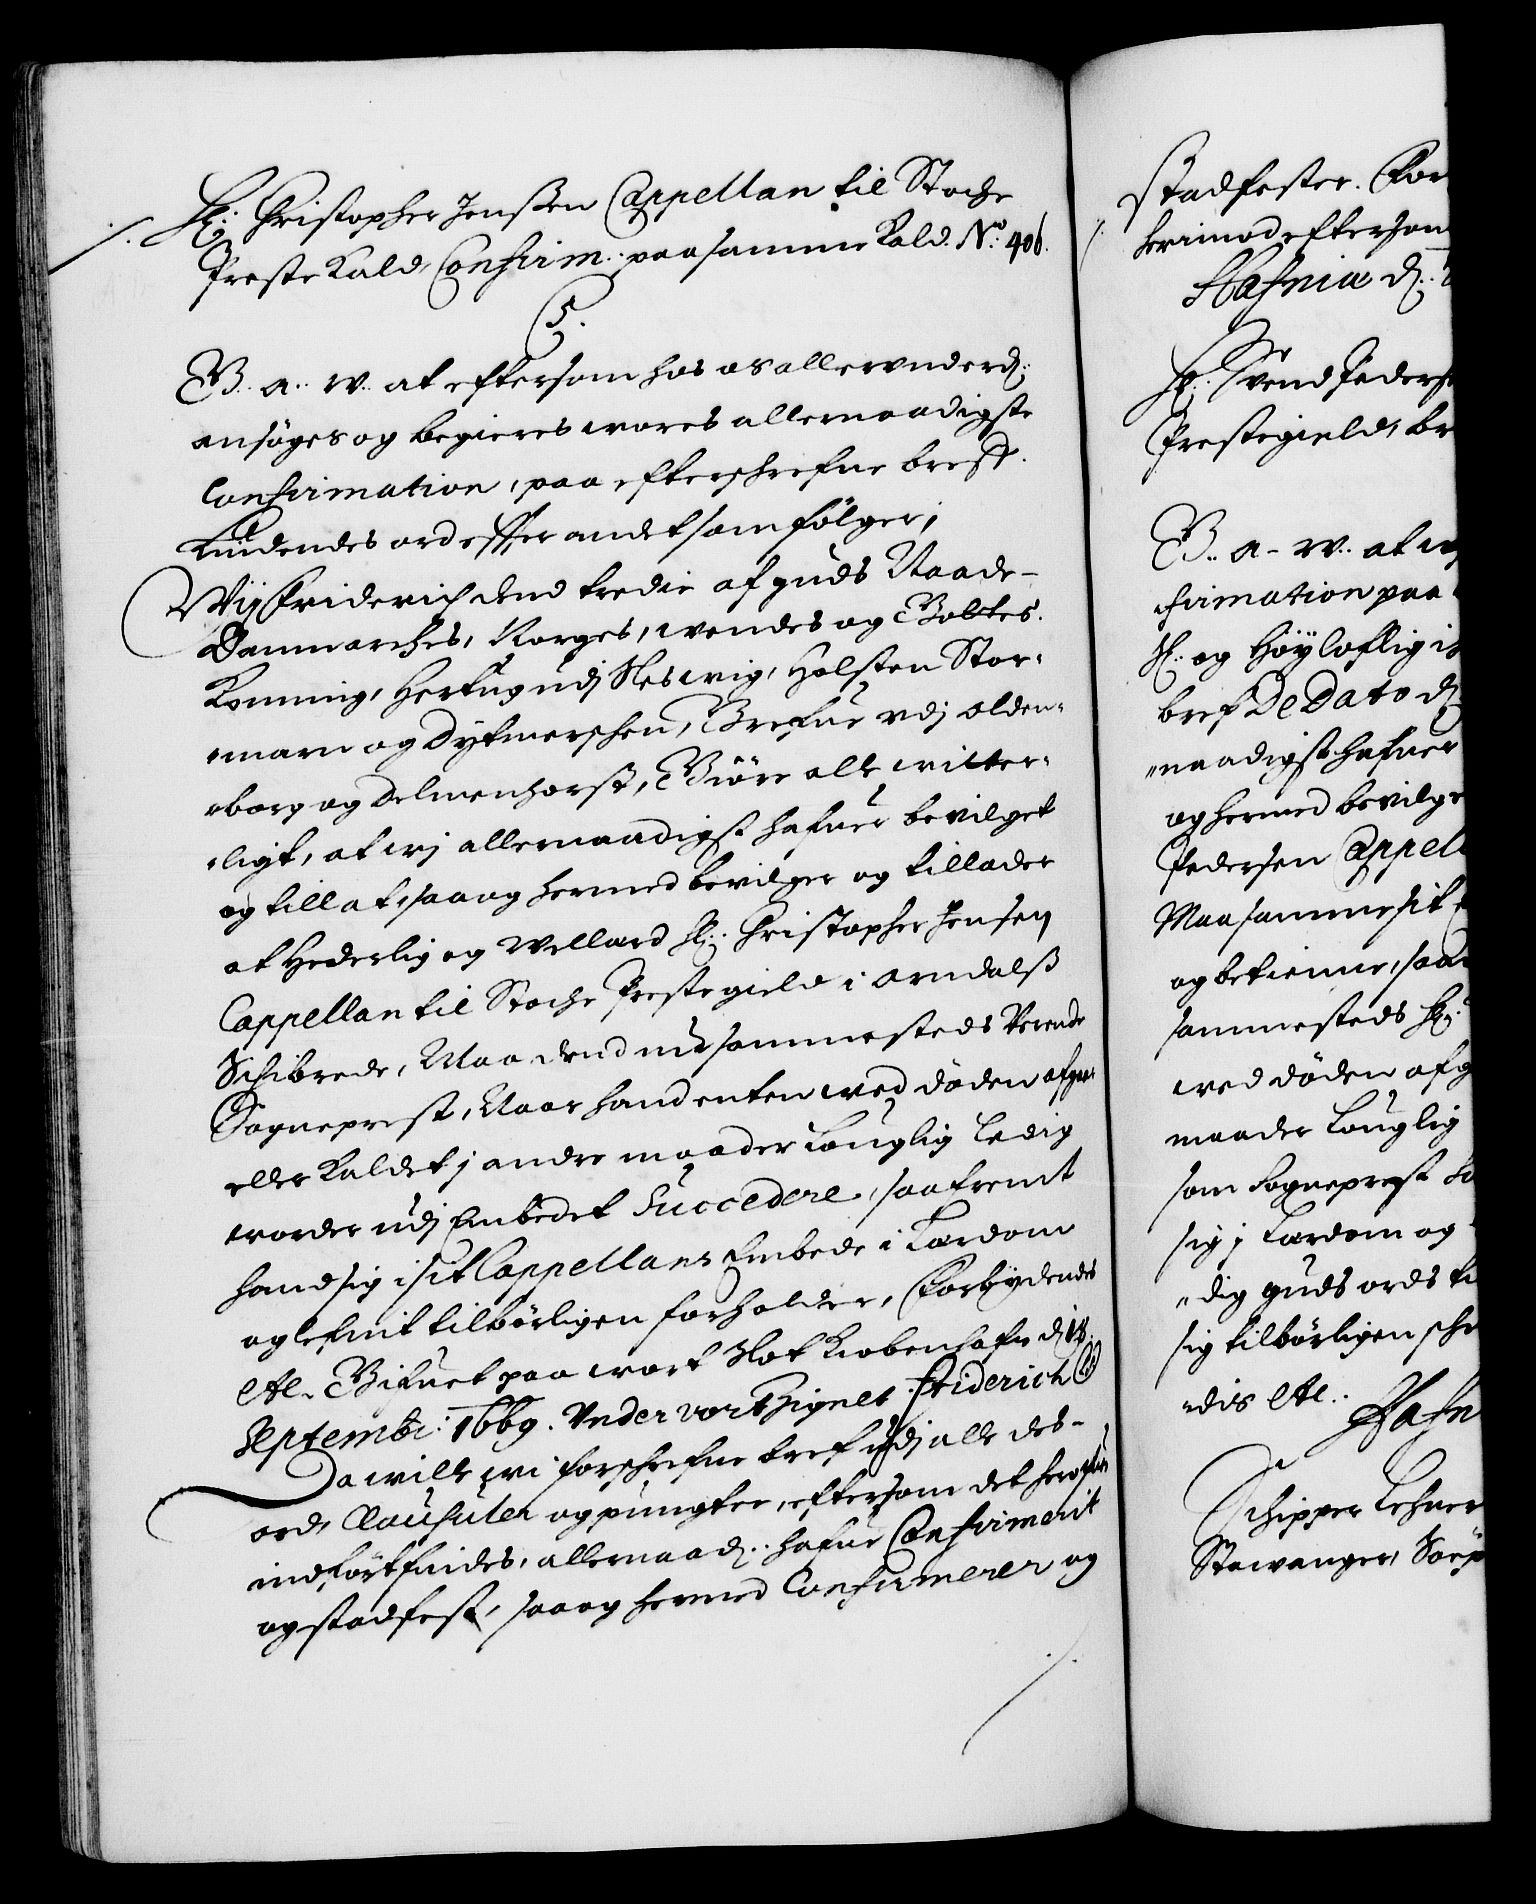 Hr: Christopher Jenssen Cappellan til Stoche
Preste Kald, Confirm: paa samme Kald. No: 406.
C5.
G. a. w. at eftersom hos os allervnderd:
ansöges og begieres wores allernaadigste
Confirmation, paa efterschrefne breff.
Liudendes ord effter andet som fölger;
Wij Friderich dend tredie af Guds Naade
Danmarches, Norges, wendes og Gottes.
Konning, Hertug udj Sleswig, Holsten Stor-
marn og Dytmerschen, Grefue vdj olden-
borg og Delmenhorst, Giöre alle witter-
ligt, at wj allernaadigst hafuer bevilget
og tillat, saa og hermed bevilger og tillader
at Hederlig og Wellærd Hr: Christopher Jensen
Cappellan til Stoche Prestegield i Arndalss
Schibrede, Maa dend nu sammesteds Verende
Sogneprest, Naar hand enten wed döden afgaar
eller Kaldet j andre maader Louglig Ledig
worder udj Embedet Succedere, saafremt
hand sig i sit Cappellans Embede i Lærdom
og lefnit tilbörligen forholder, Forbydendes
etc. Gifuet paa wort Slot Kiöbenhafn d. 18.
Septembr: 1669. Under vort Zignet Friderich
Da wille wi forschrefne bref udj alle des
ord, Clausuler og pungter, eftersom det herofuen
indfört findes, allernaad: hafue Confirmerit
og stadfest, saa og hermed Confirmerer og
stadfester. For
herimod eftersom
Hafniæ d:
Hr: Svend Peders
Prestegield, br
G. a. w. at w
firmation paa
Sl: og Höyloflig i
bref De Dato d
naadigst hafuer
og hermed bevilge
Pedersen Cappel
Maa samme sit
og betienne, saa
sammesteds Hr:
wed döden afg
maader Louglig
som Sogneprest
sig j Lærdom og
dig Guds ords
sig tilbörligen sch
dis etc. Hafn
Schipper Lehner
Stawanger, Söep